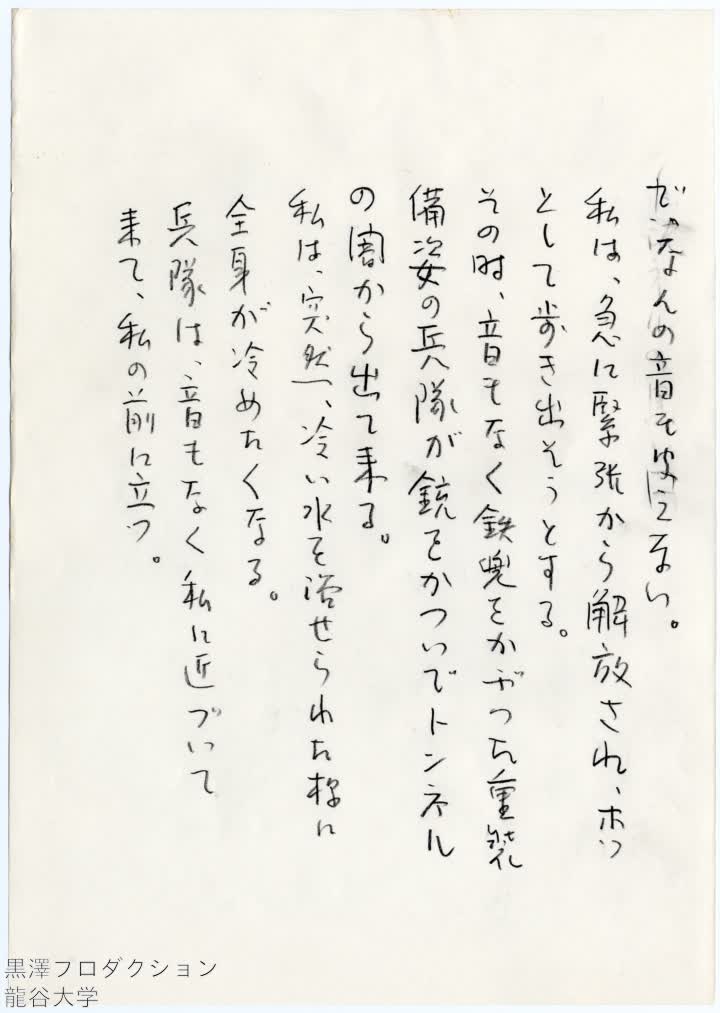 だが、なんの音も聞こえない。
私は、急に緊張から解放され、ホッ
として歩き出そうとする。
その時、音もなく鉄兜をかぶった重装
備姿の兵隊が銃をかついでトンネル
の闇から出て来る。
私は、突然、冷い水を浴せられた様に
全身が冷めたくなる。
兵隊は、音もなく私に近づいて
来て、私の前に立つ。
黒澤プロダクション
龍谷大学